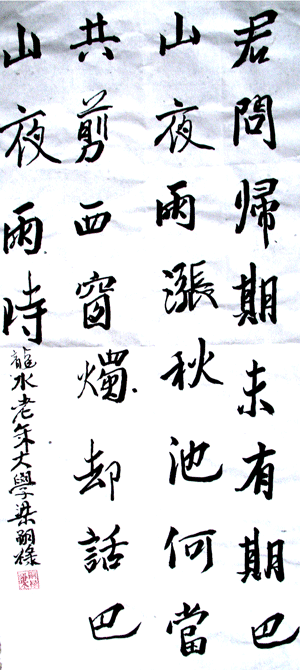 君問歸期未有期巴
山夜雨漲秋池何當
共剪西窗燭却話巴
山夜雨時
龍水老年大學梁嗣祿